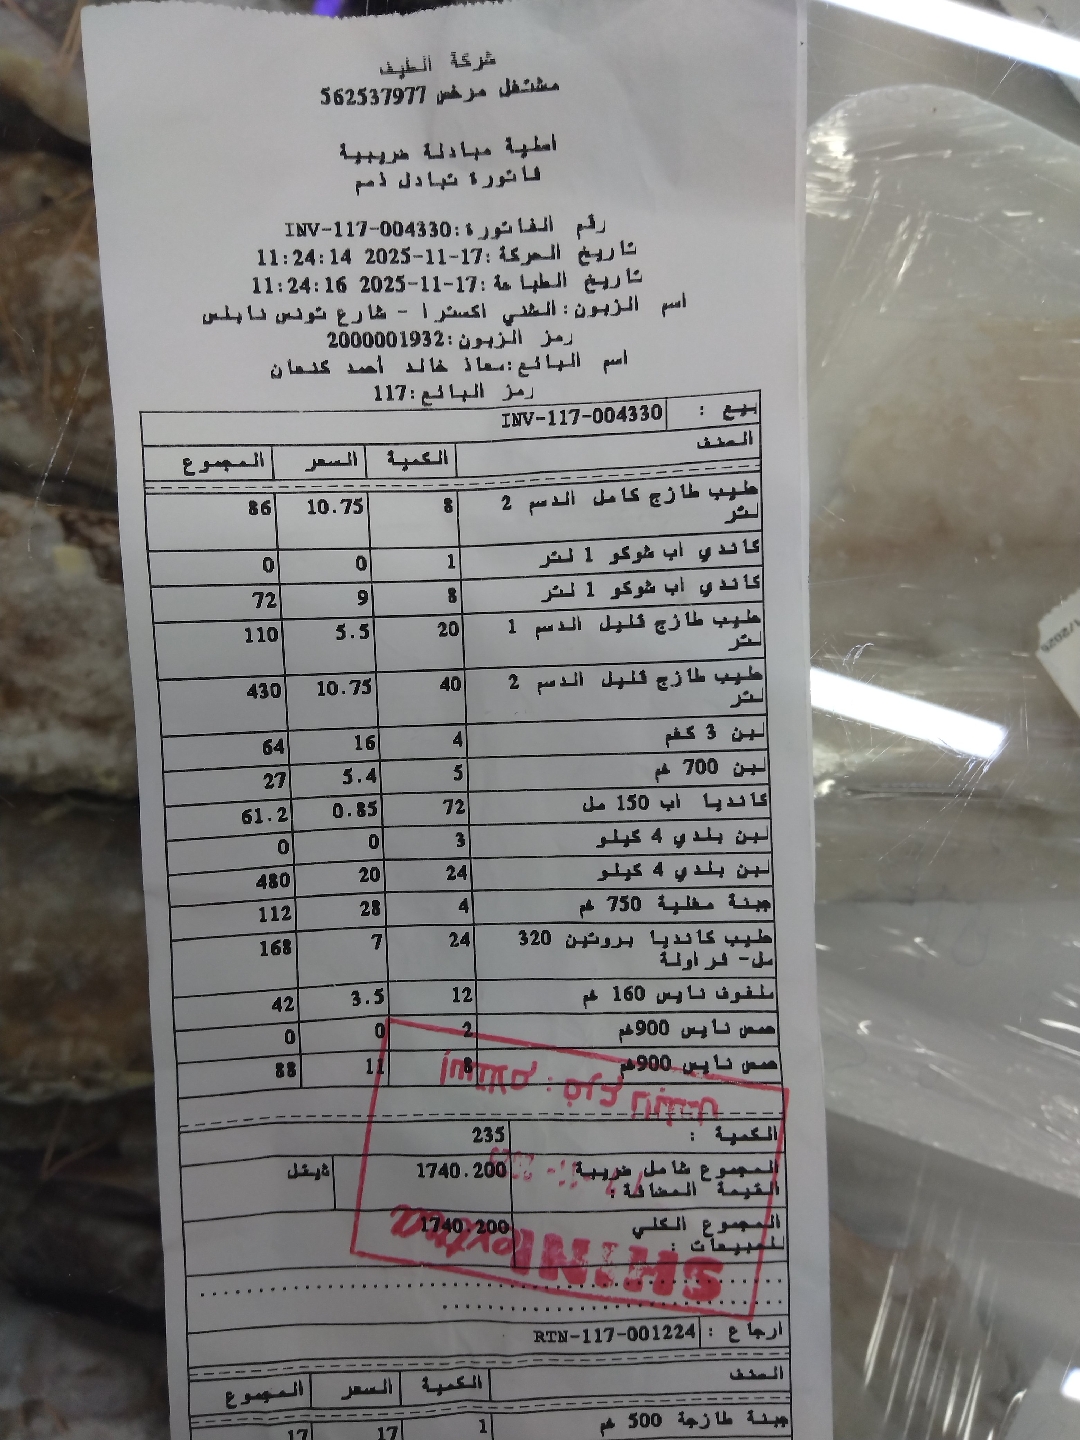 شركة الطيف
مشتغل مرخص 562537977
اصلية مبادلة ضريبية
فاتورة تبادل ذمم
رقم الفاتورة:INV-117-004330
تاريخ الحركة:17-11-2025 11:24:14
تاريخ الطباعة:17-11-2025 11:24:16
اسم الزبون:الشني اكسترا - شارع تونس نابلس
رمز الزبون:2000001932
اسم البائع:معاذ خالد أحمد كنعان
رمز البائع:117
بيع : INV-117-004330
الصنف الكمية السعر المجموع
حليب طازج كامل الدسم 2 لتر 8 10.75 86
كاندي أب شوكو 1 لتر 1 0 0
كاندي أب شوكو 1 لتر 8 9 72
حليب طازج قليل الدسم 1 لتر 20 5.5 110
حليب طازج قليل الدسم 2 لتر 40 10.75 430
لبن 3 كغم 4 16 64
لبن 700 غم 5 5.4 27
كانديا أب 150 مل 72 0.85 61.2
لبن بلدي 4 كيلو 3 0 0
لبن بلدي 4 كيلو 24 20 480
جبنة مغلية 750 غم 4 28 112
حليب كانديا بروتين 320 مل- فراولة 24 7 168
ملفوف نايس 160 غم 12 3.5 42
حمص نايس 900غم 2 0 0
حمص نايس 900غم 8 11 88
استلام : فرع تونس
الكمية : 235
المجموع شامل ضريبة القيمة المضافة: 1740.200 شيقل
المجموع الكلي للمبيعات : 1740.200
SHINI
extra
ارجاع : RTN-117-001224
الصنف الكمية السعر المجموع
جبنة طازجة 500 غم 1 17 17